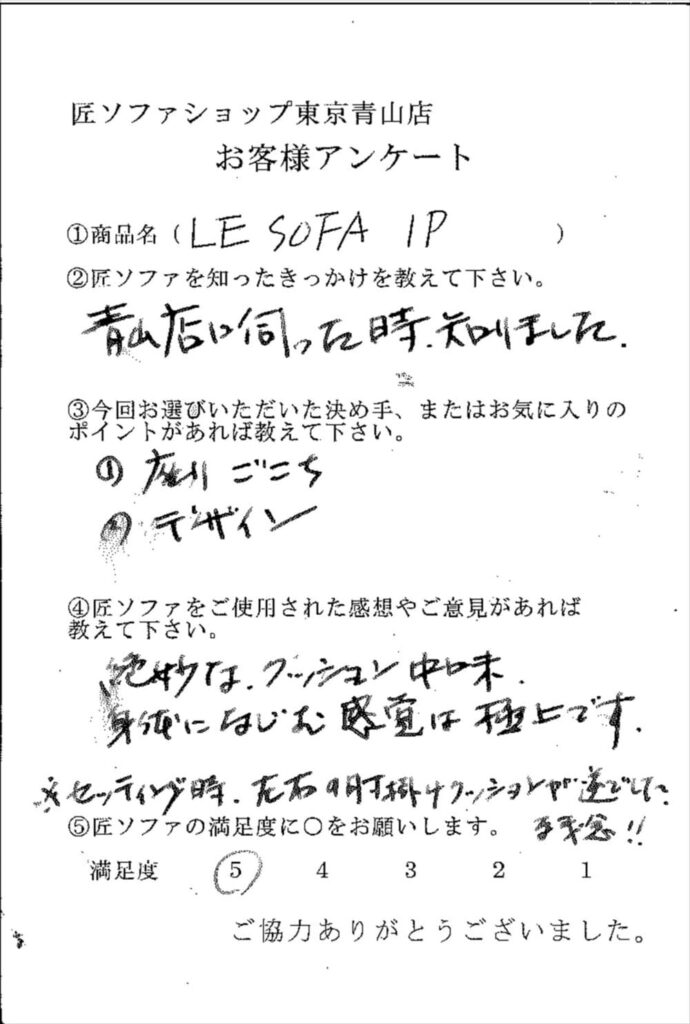 匠ソファショップ東京青山店
お客様アンケート
①商品名（LE SOFA 1P）
②匠ソファを知ったきっかけを教えて下さい。
青山店に伺った時、知りました。
③今回お選びいただいた決め手、またはお気に入りの
ポイントがあれば教えて下さい。
① 座りごこち
② デザイン
④匠ソファをご使用された感想やご意見があれば
教えて下さい。
絶妙な、クッション
身体になじむ感覚は極上です。
※セッティング時、左右の肘掛けクッションが逆でした
⑤匠ソファの満足度に〇をお願いします。 残念!!
満足度 5 4 3 2 1
ご協力ありがとうございました。